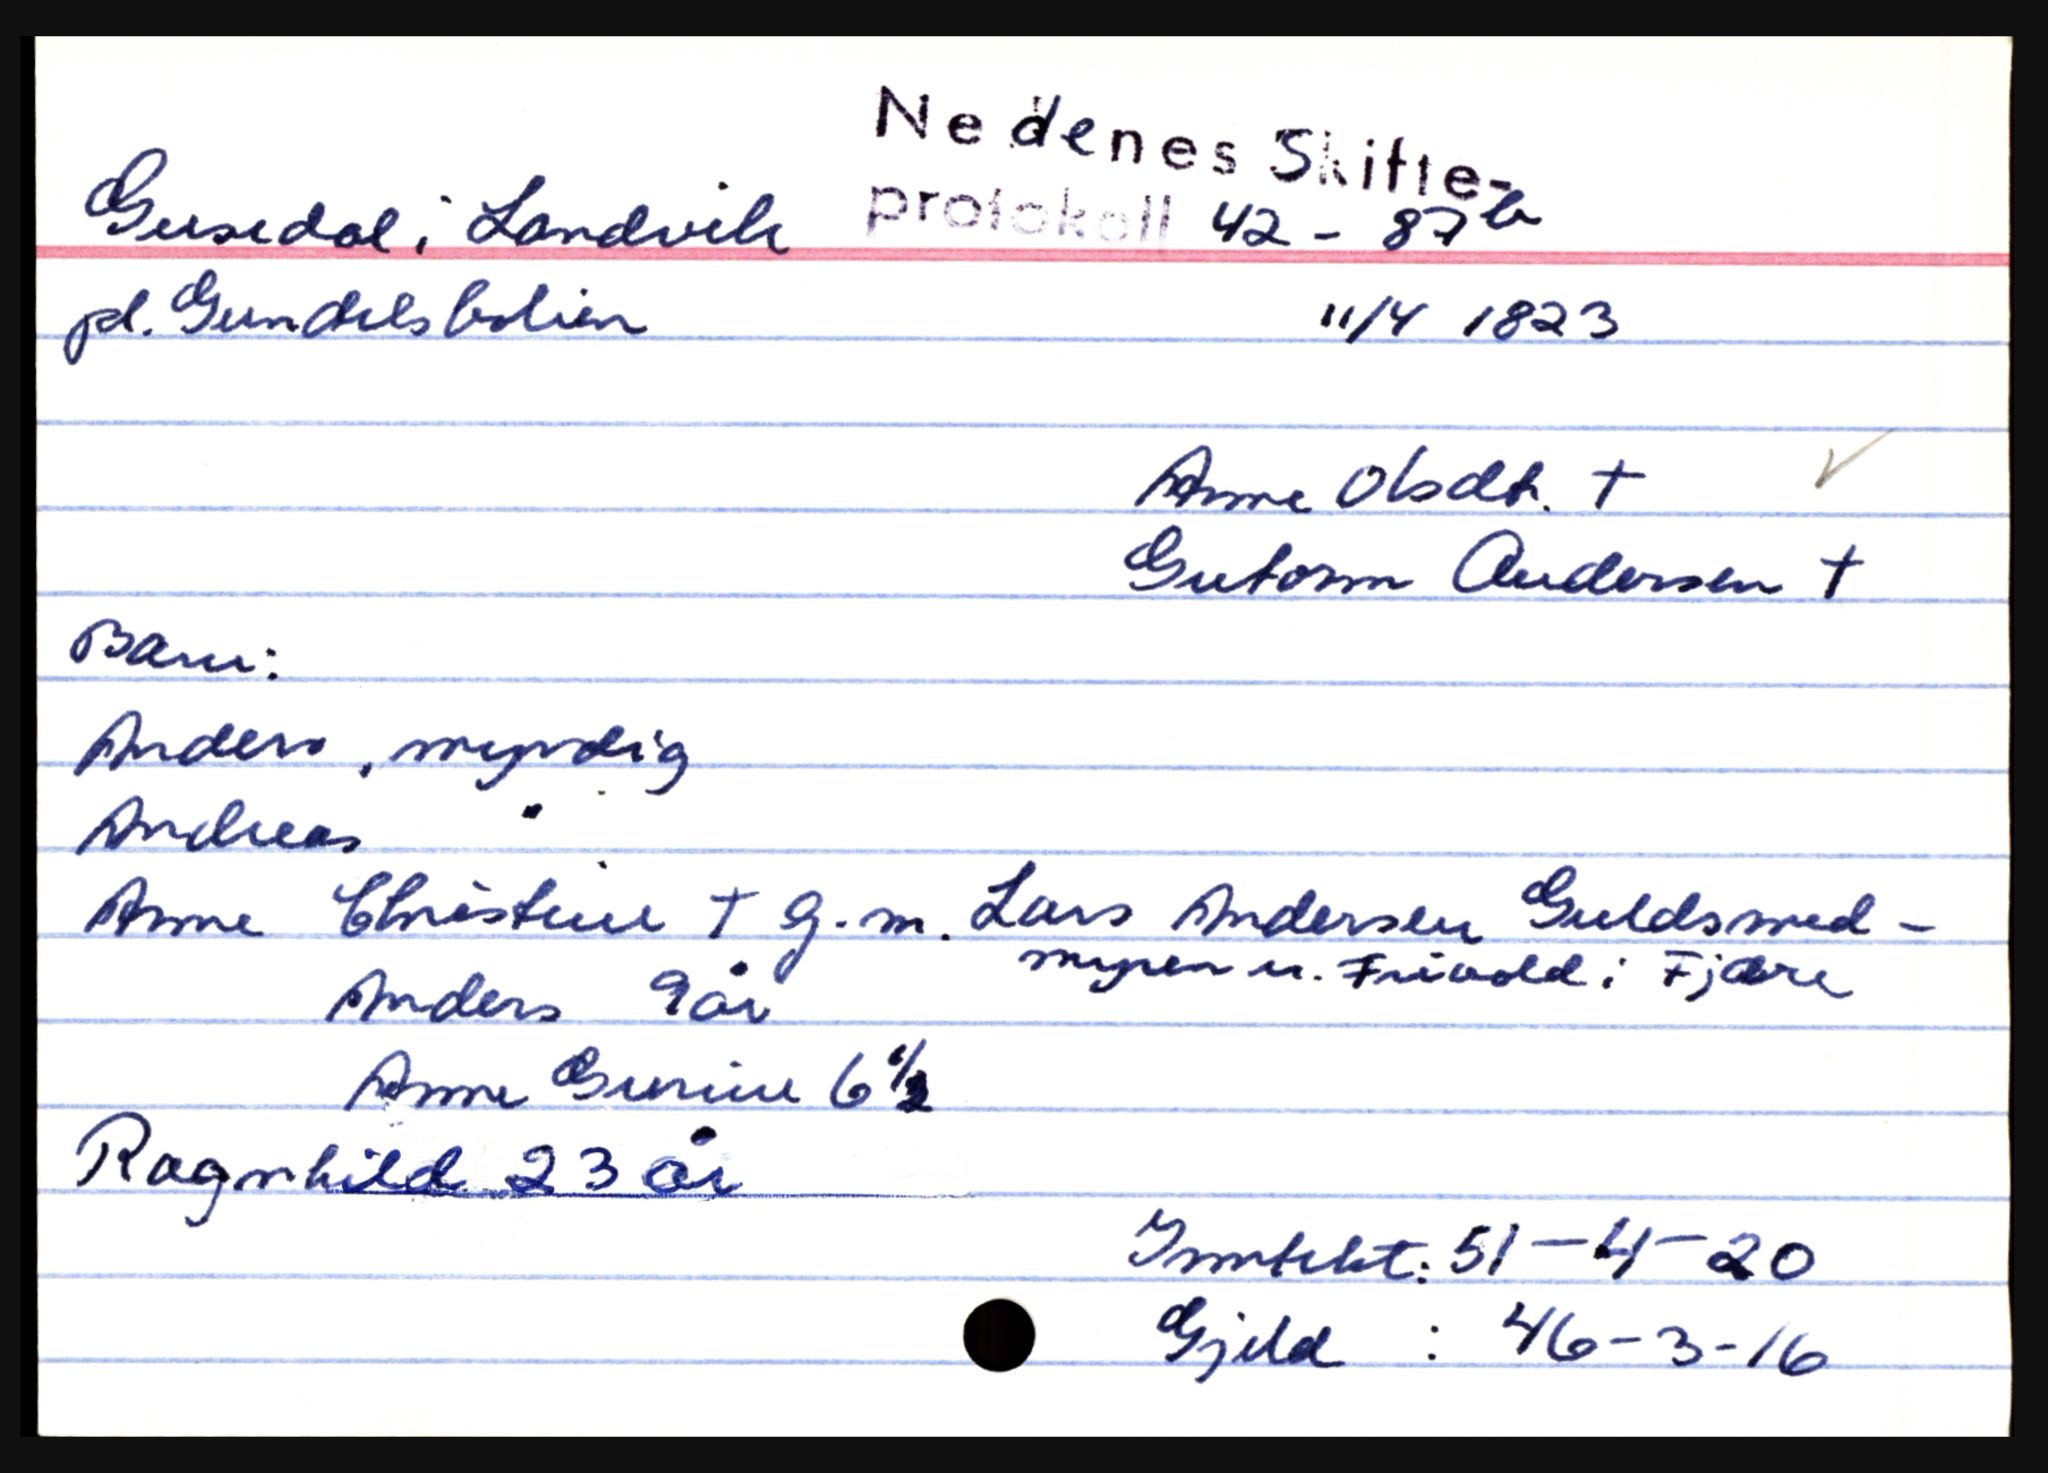 Nedenes Skifte-
protokoll 42 - 87b
Gusedal i Landvik
pl. Gundelsbolien
11/4 1823
Anne Olsdt. †
Gutorm Andersen †
Barn:
Anders, myndig
Andreas "
Anne Christine † g.m. Lars Andersen Guldsmed-
myren u. Frivold i Fjære
Anders 9 år
Anne Gurine 6 1/2
Ragnhild 23 år
Inntekt: 51-4-20
Gjeld : 46-3-16